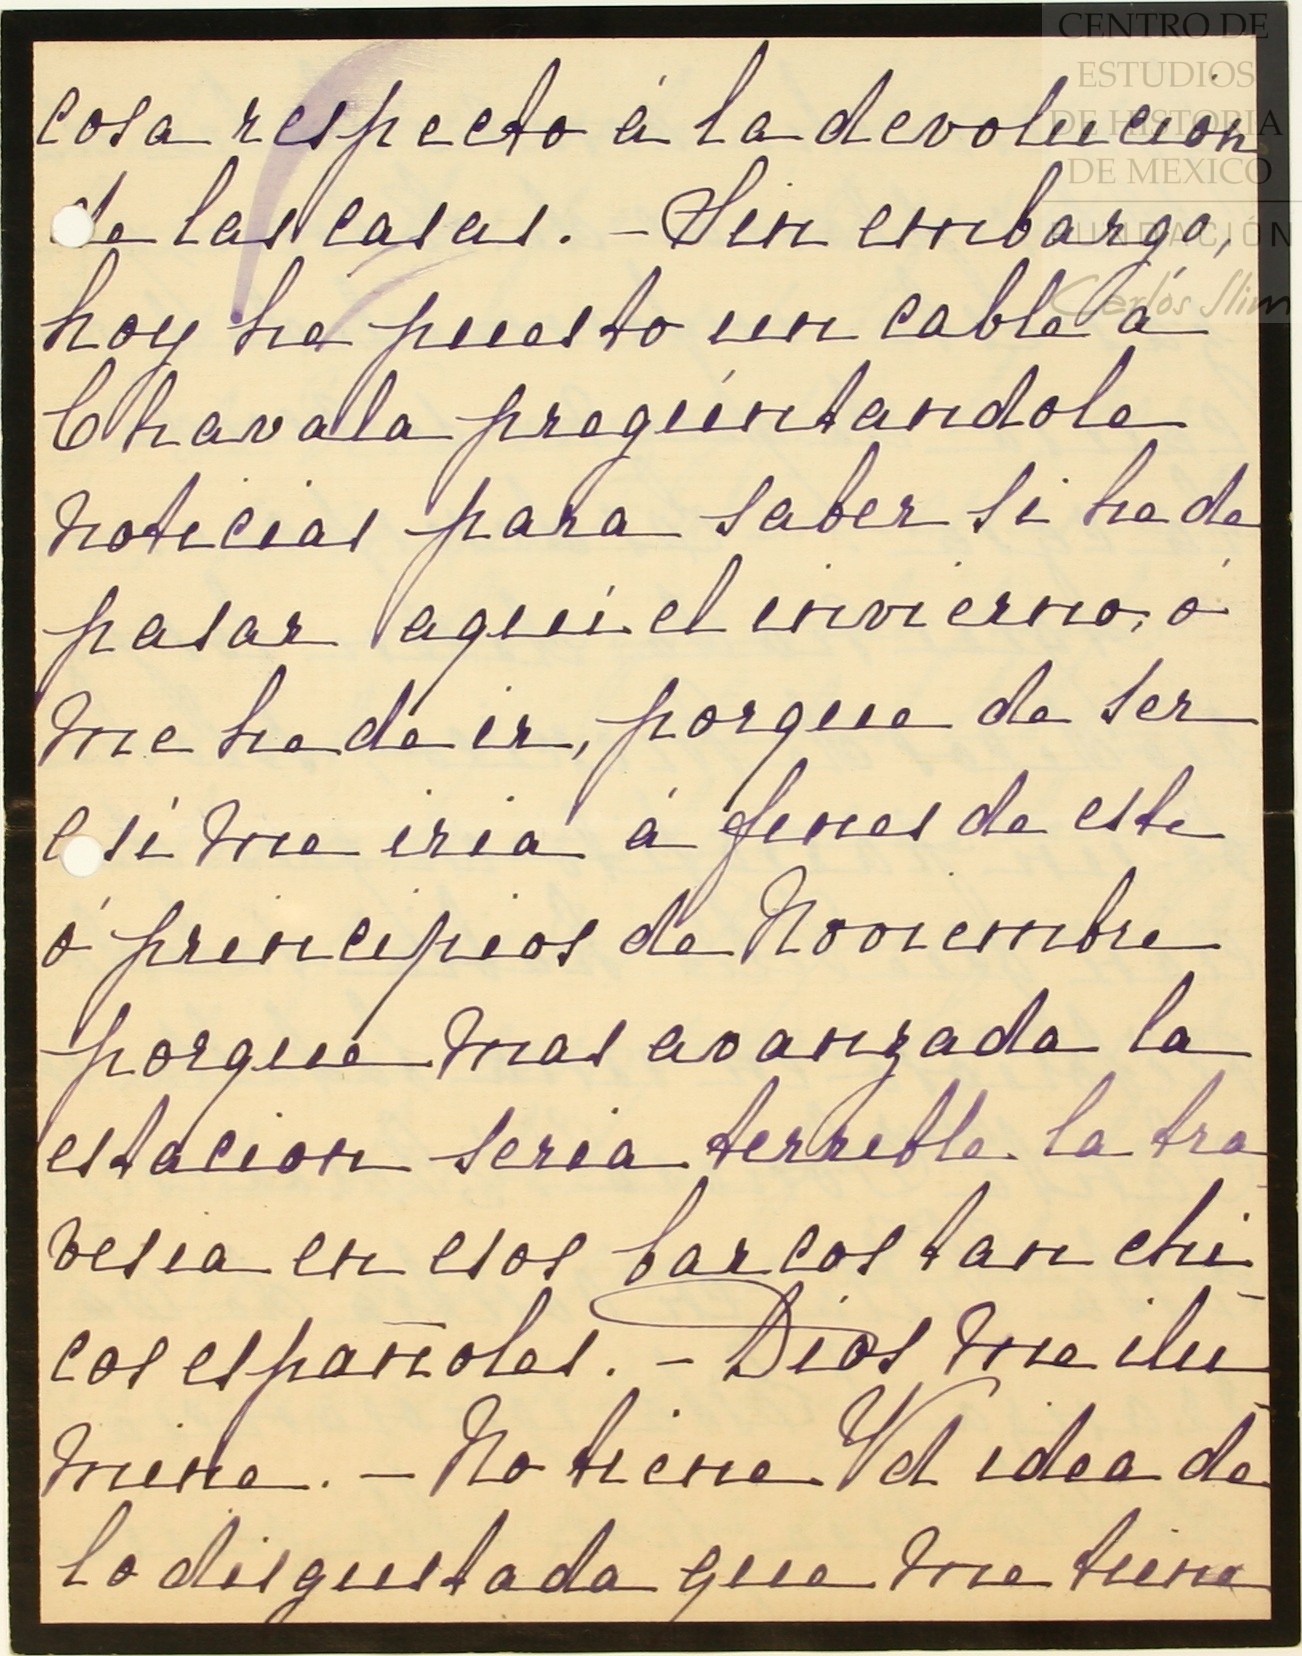 CENTRO DE
ESTUDIOS
DE HISTORIA
DE MEXICO
FUNDACIÓN
Carlos Slim
cosa respecto á la devolucion
de las casas. - Sin embargo,
hoy he puesto un cable á
Chavala pregúntandole
noticias para saber si he de
pasar aqui el invierno, ó
me he de ir, porque de ser
asi me iria á fines de este
ó principios de Noviembre
porque mas avanzada la
estacion seria terrible la tra-
vesia en esos barcos tan chi-
cos españoles. - Dios me ilu-
mine. - No tiene Vd idea de
lo disgustada que me tiene